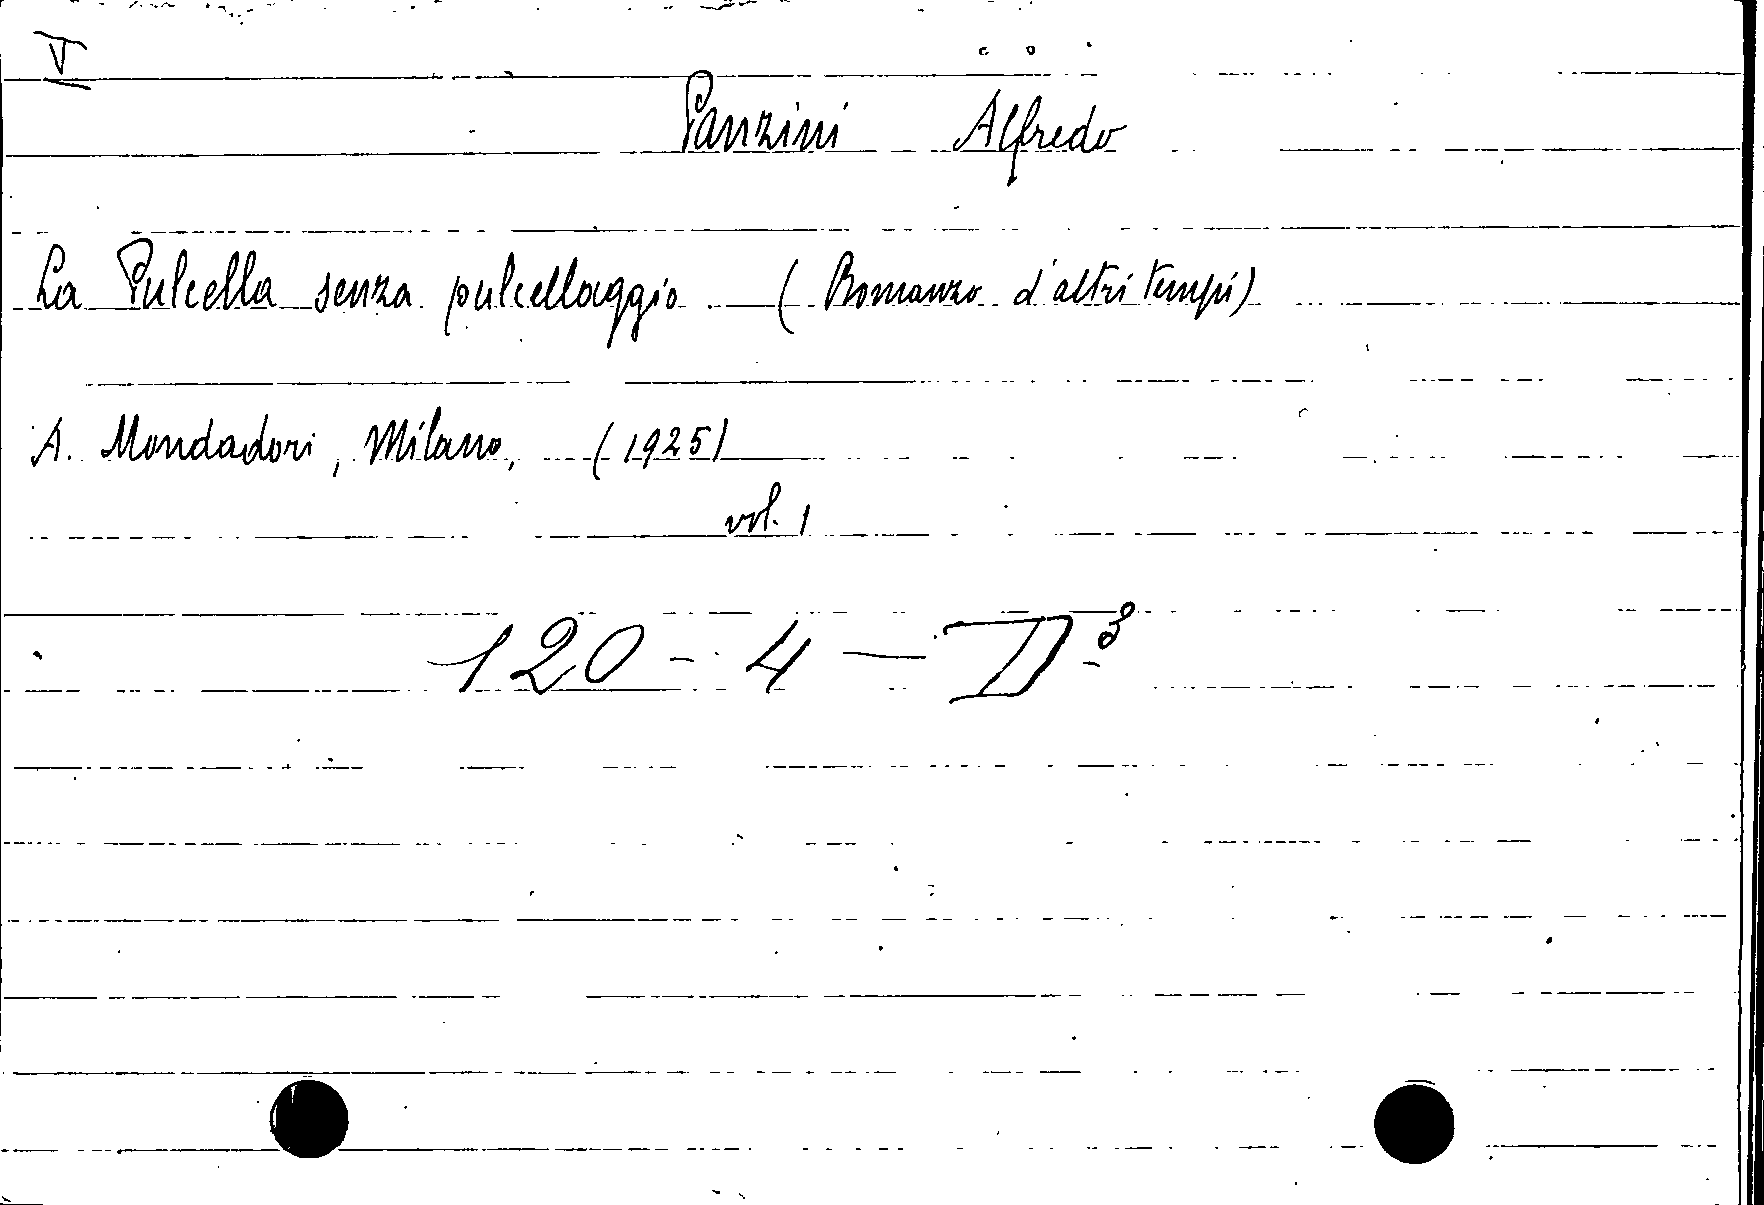 V
Panzini Alfredo
La Pulcella senza pulcellaggio (Romanzo d'altri tempi)
A. Mondadori, Milano, (1925)
vol. 1
120 - 4 - D³